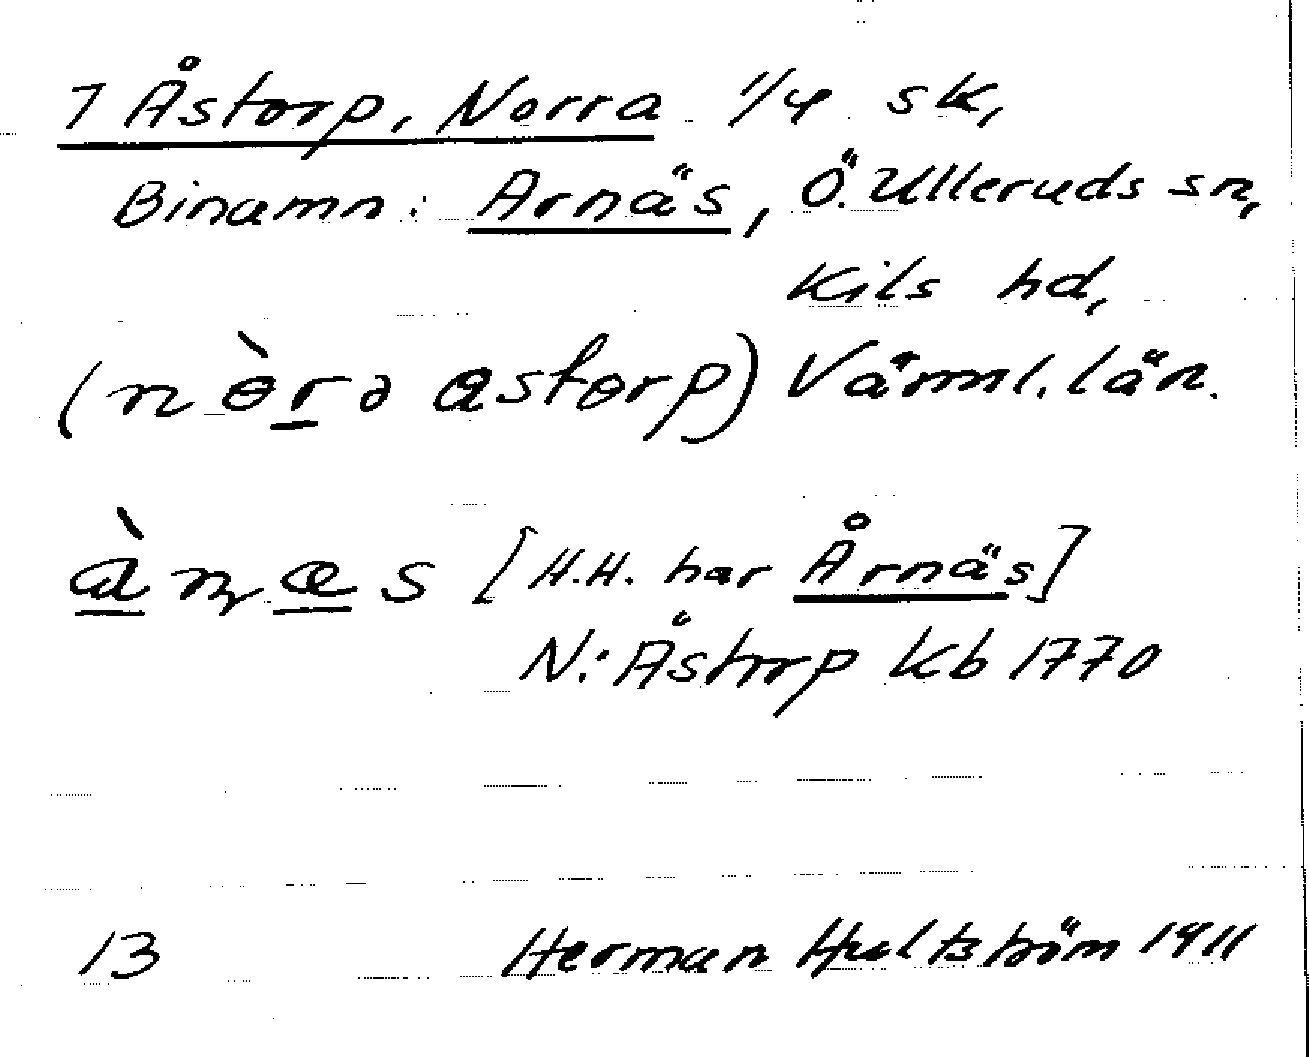 7 Åstorp, Norra 1/4 sk,
Binamn: Arnäs, Ö. Ulleruds sn,
Kils hd,
(nɵ̀rə ɑstɵrp) Värml. län.
àɳæs [H.H. har Årnäs]
N: Åstorp Kb 1770
13 Herman Hultström 1911